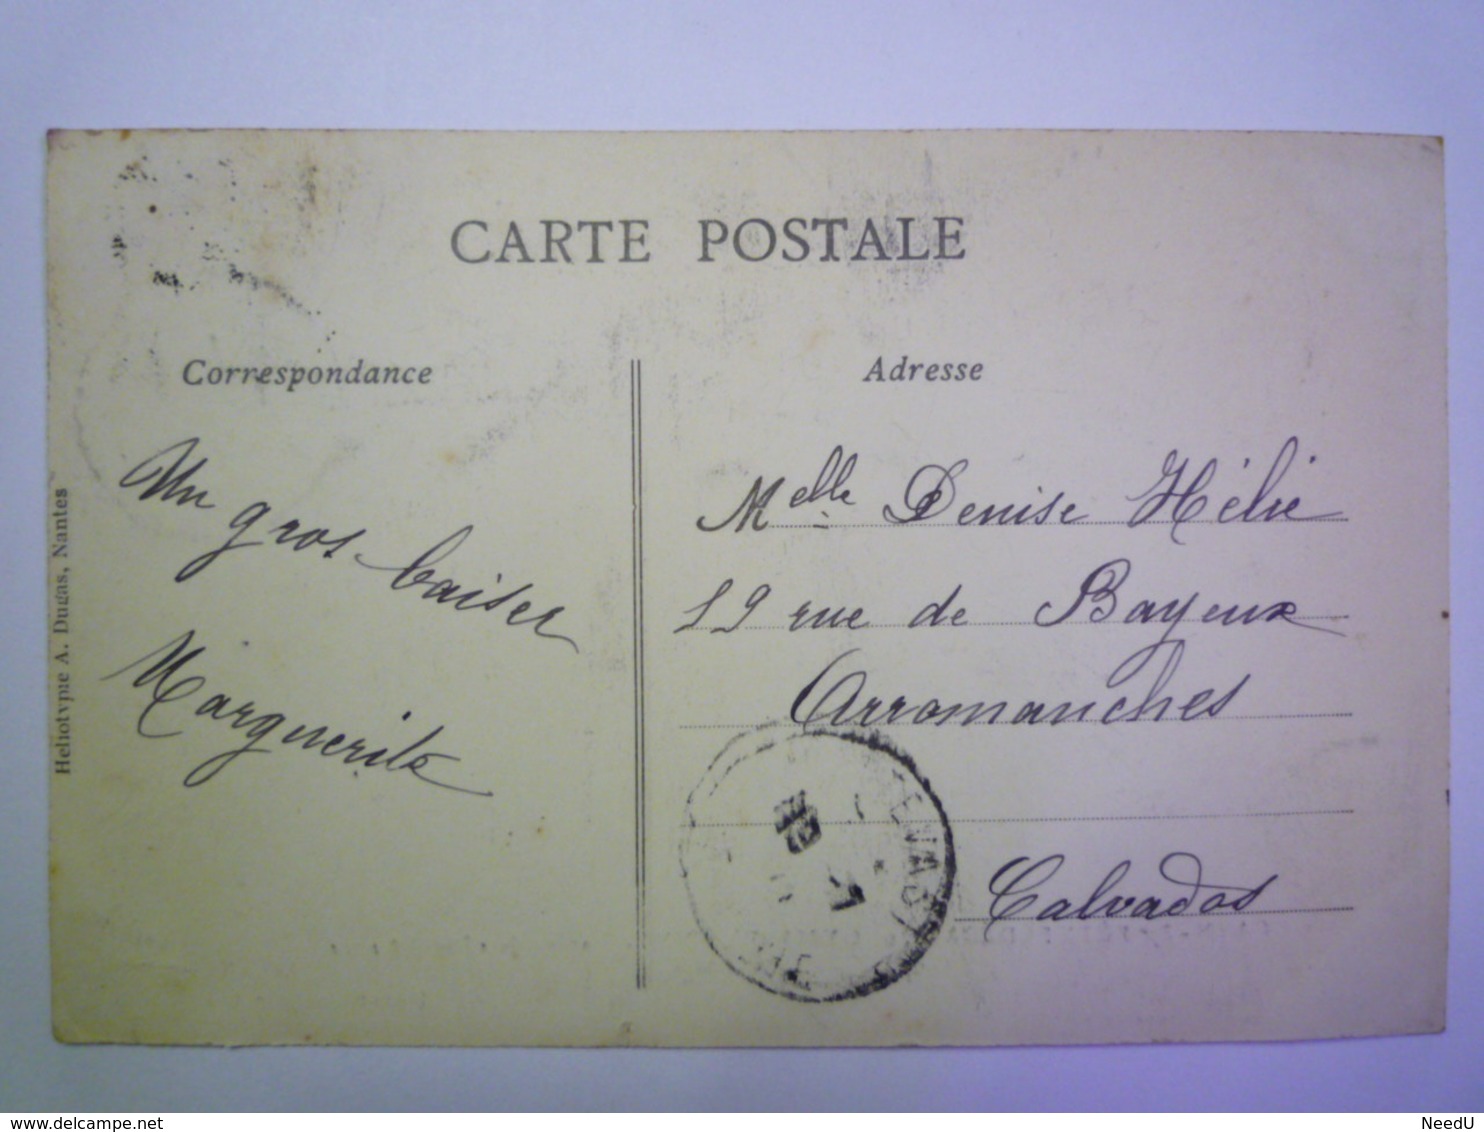 CARTE POSTALE
Correspondance
Adresse
Un
gros baiser
Marguerite
Melle Denise Hélie
19 rue de Bayeux
Arromanches
Calvados
Heliotypie A. Dugas, Nantes
www.delcampe.net
NeedU